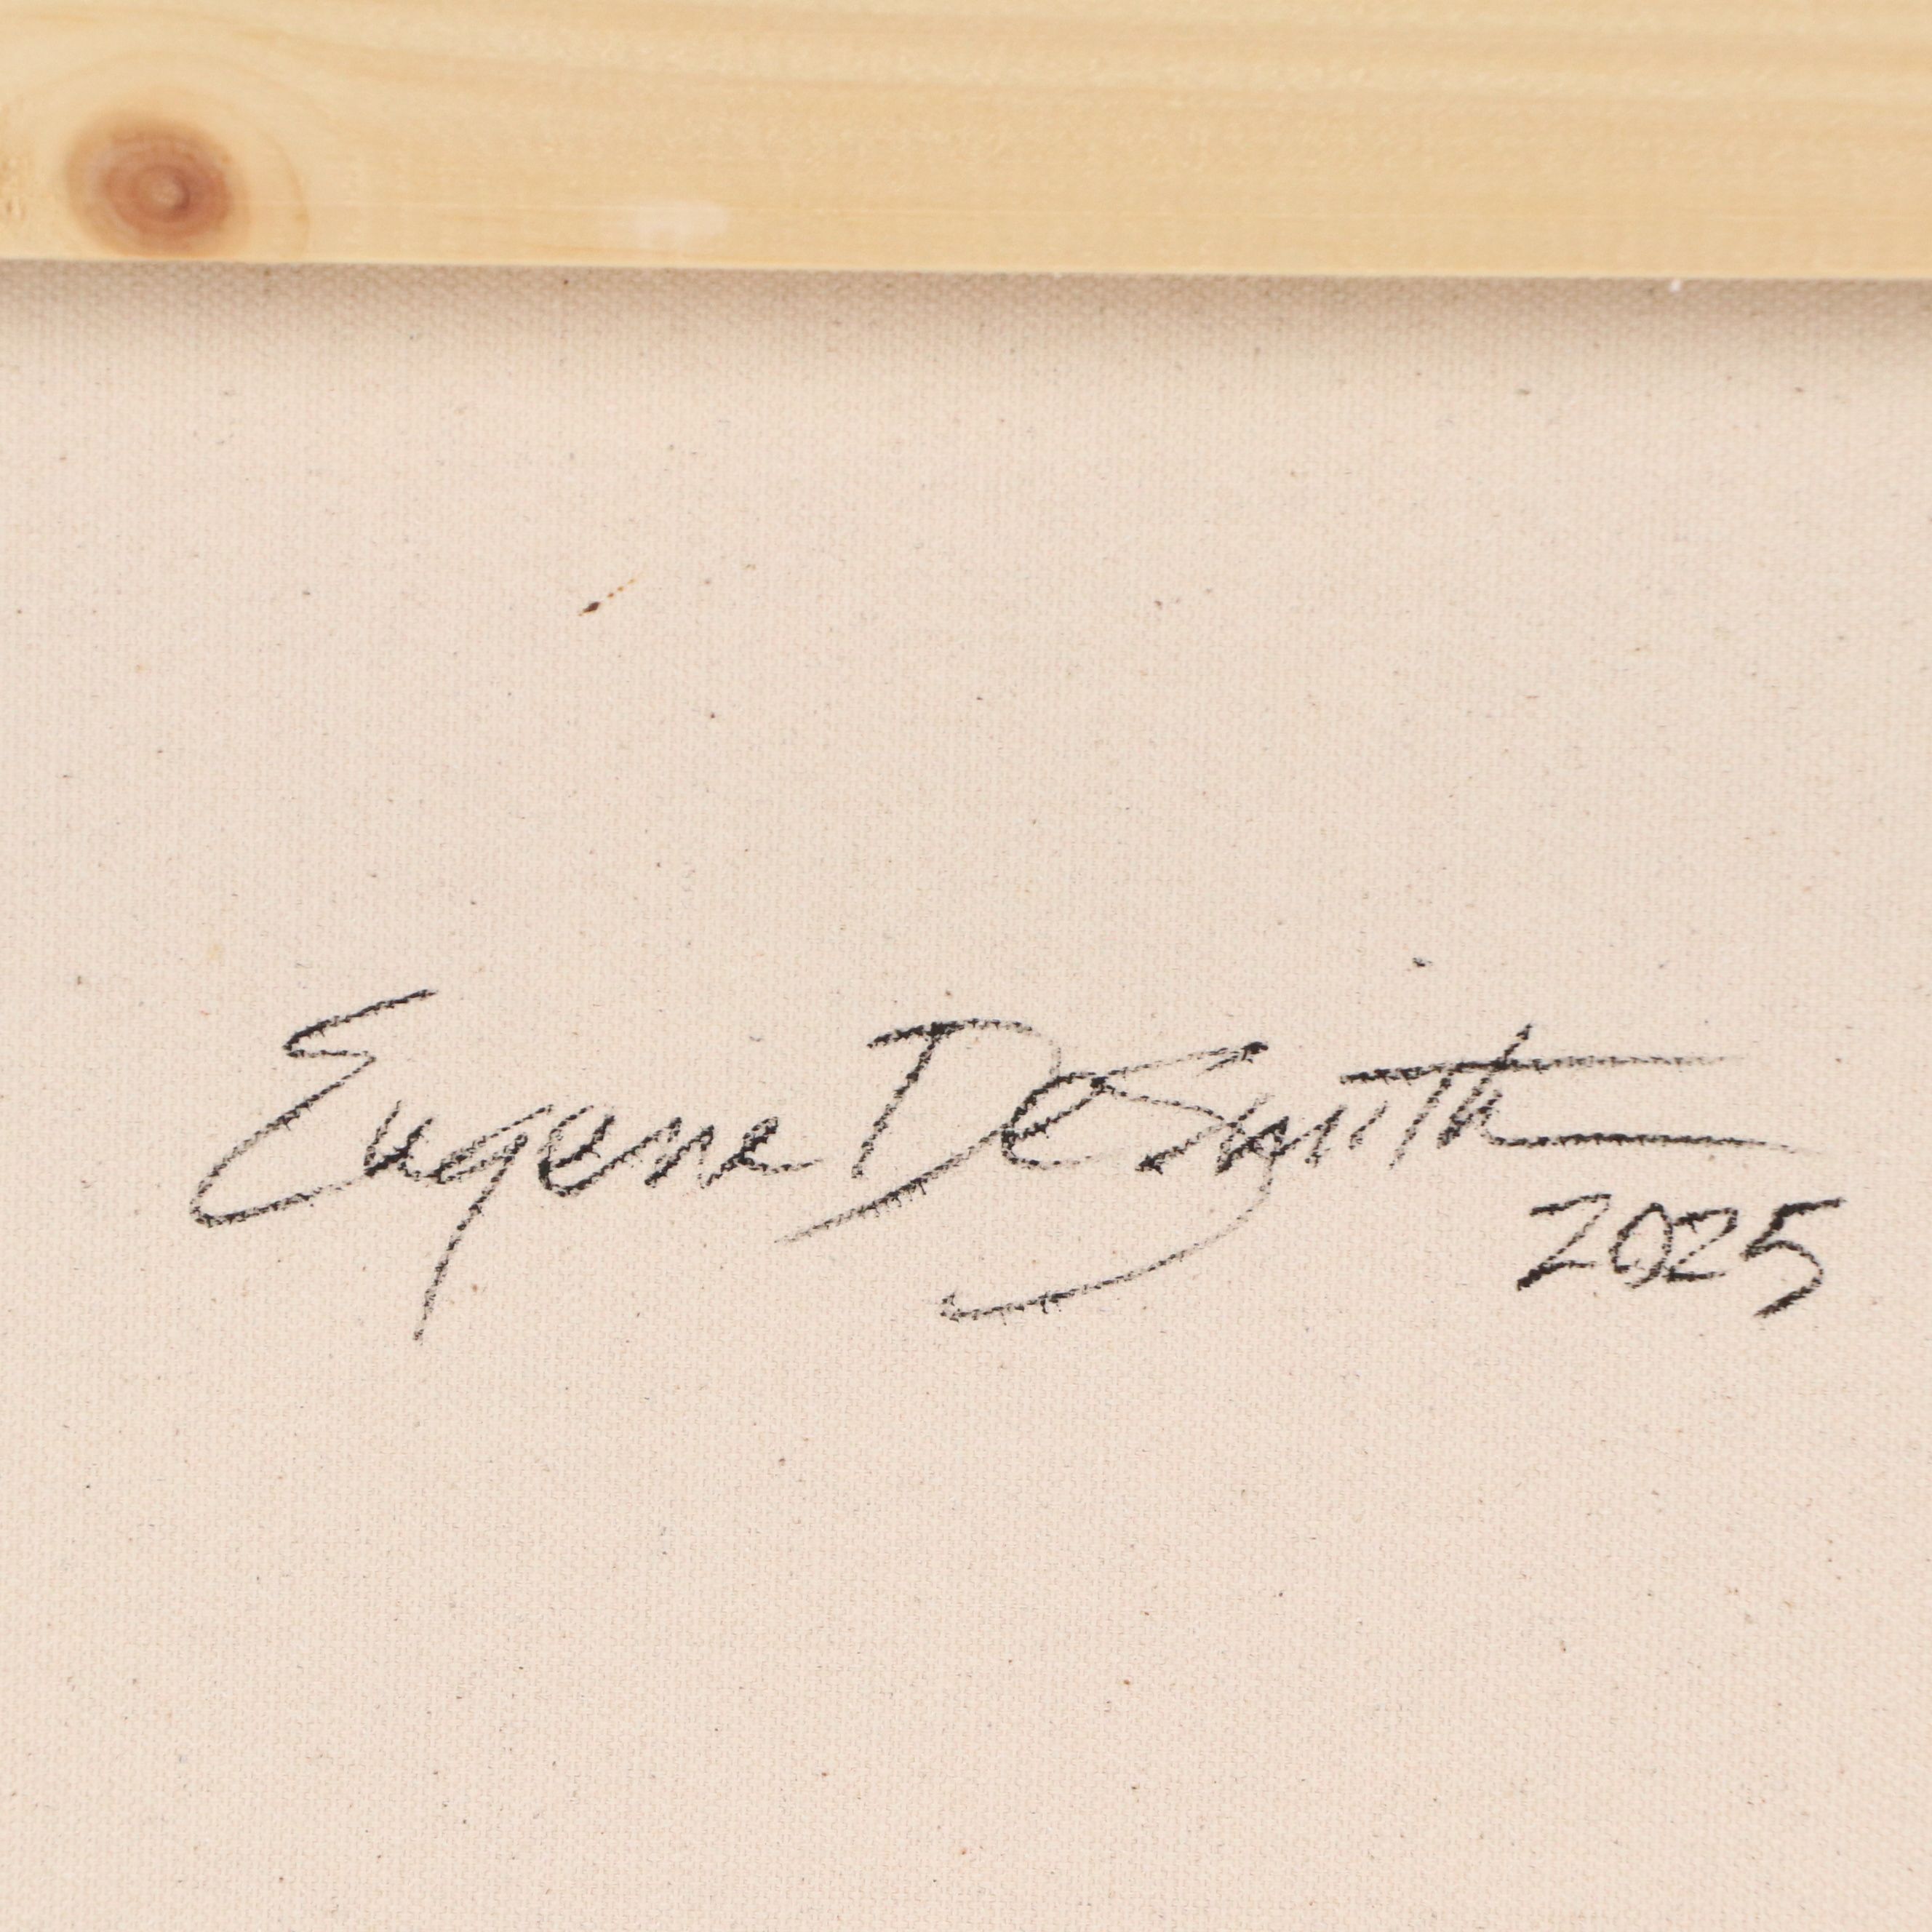 Eugene DeSmith
2025